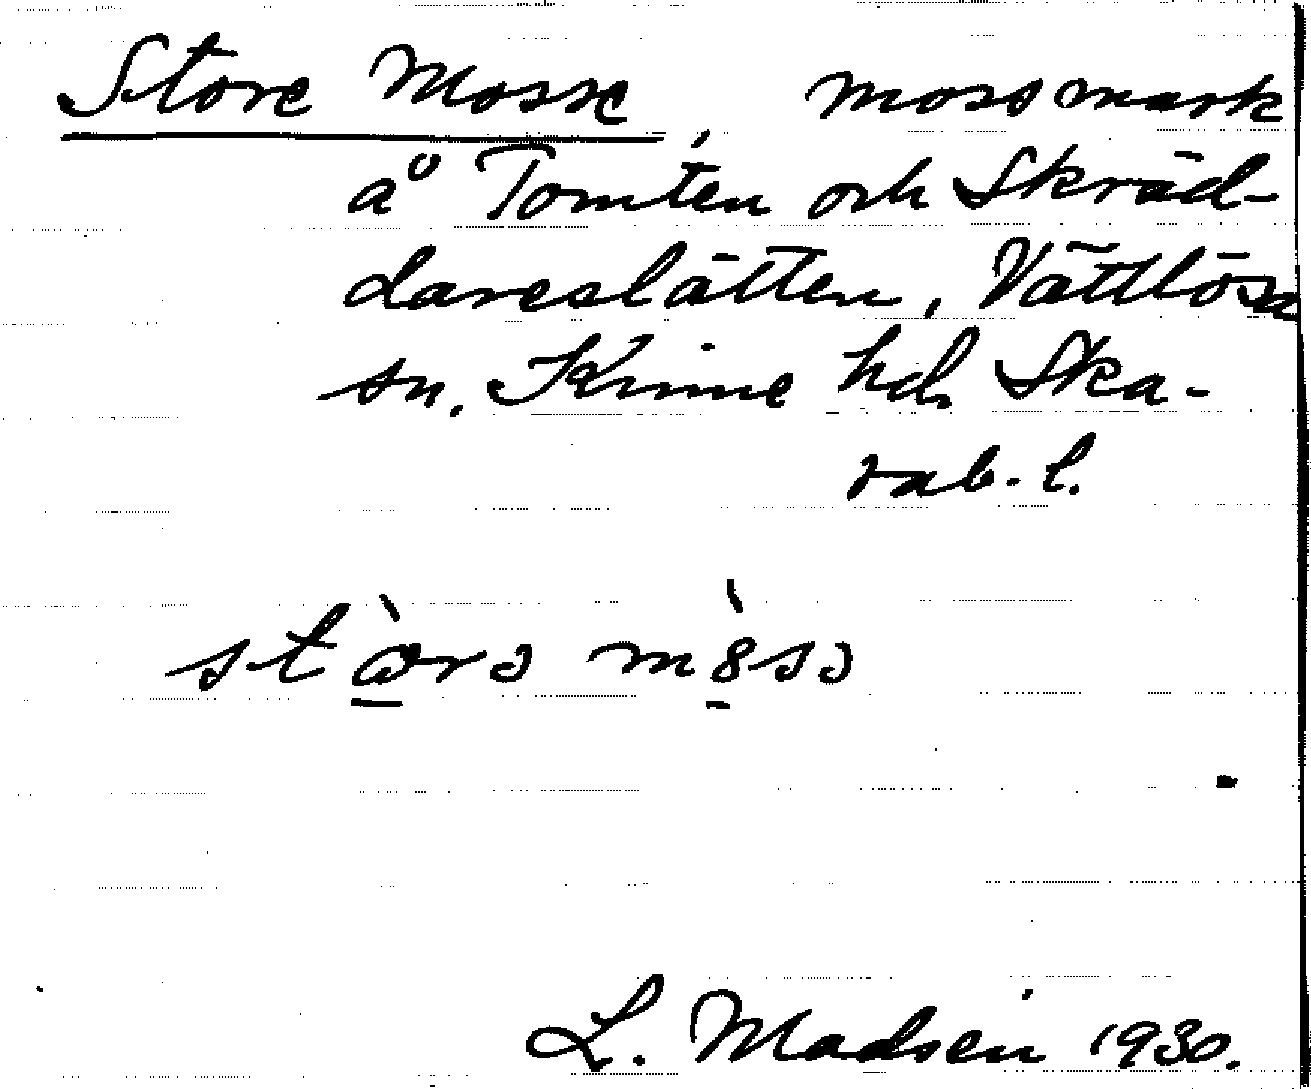 Store Mosse, mossmark
å Tomten och Skräd-
dareslätten, Vättlösa
sn. Kinne hd, Ska-
rab. l.
L. Madsén 1930.